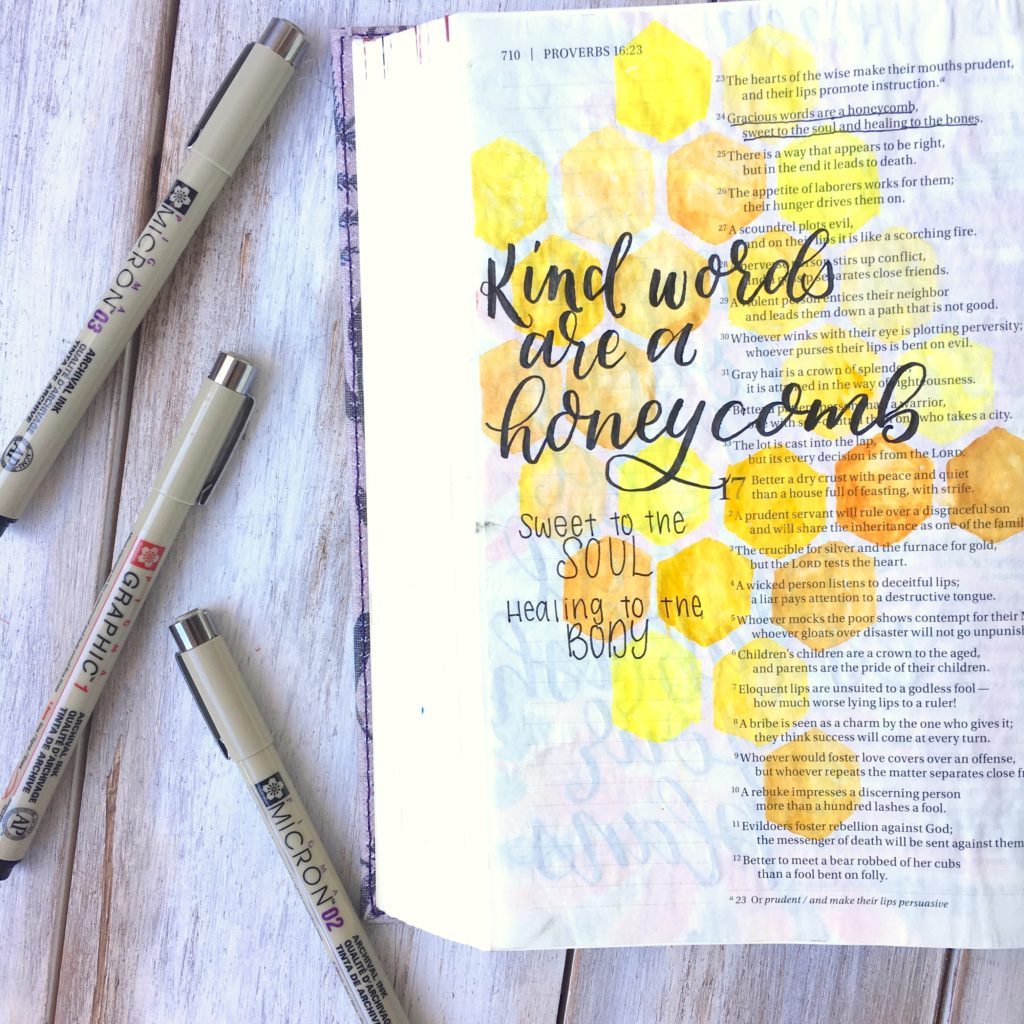 PIGMA
MICRON™ 03
ARCHIVAL INK
QUALITÉ D'ARCHIVAGE
TINTA DE ARCHIVE
PIGMA
GRAPHIC™ 1
ARCHIVAL INK
QUALITÉ D'ARCHIVAGE
TINTA DE ARCHIVE
AP
PIGMA
MICRON™ 02
ARCHIVAL INK
QUALITÉ D'ARCHIVAGE
TINTA DE ARCHIVE
710 | PROVERBS 16:23
23 The hearts of the wise make their mouths prudent,
and their lips promote instruction.a
24 Gracious words are a honeycomb,
sweet to the soul and healing to the bones.
25 There is a way that appears to be right,
but in the end it leads to death.
26 The appetite of laborers works for them;
their hunger drives them on.
27 A scoundrel plots evil,
and on their lips it is like a scorching fire.
28 A perverse person stirs up conflict,
and a gossip separates close friends.
29 A violent person entices their neighbor
and leads them down a path that is not good.
30 Whoever winks with their eye is plotting perversity;
whoever purses their lips is bent on evil.
31 Gray hair is a crown of splendor;
it is attained in the way of righteousness.
Better a patient person than a warrior,
one with self-control than one who takes a city.
33 The lot is cast into the lap,
but its every decision is from the LORD.
17 Better a dry crust with peace and quiet
than a house full of feasting, with strife.
2 A prudent servant will rule over a disgraceful son
and will share the inheritance as one of the famil
3 The crucible for silver and the furnace for gold,
but the LORD tests the heart.
4 A wicked person listens to deceitful lips;
a liar pays attention to a destructive tongue.
5 Whoever mocks the poor shows contempt for their M
whoever gloats over disaster will not go unpunish
6 Children's children are a crown to the aged,
and parents are the pride of their children.
7 Eloquent lips are unsuited to a godless fool—
how much worse lying lips to a ruler!
8 A bribe is seen as a charm by the one who gives it;
they think success will come at every turn.
9 Whoever would foster love covers over an offense,
but whoever repeats the matter separates close f
10 A rebuke impresses a discerning person
more than a hundred lashes a fool.
11 Evildoers foster rebellion against God;
the messenger of death will be sent against them
12 Better to meet a bear robbed of her cubs
than a fool bent on folly.
a 23 Or prudent / and make their lips persuasive
Kind words
are a
honeycomb
Sweet to the
SOUL
Healing to the
BODY